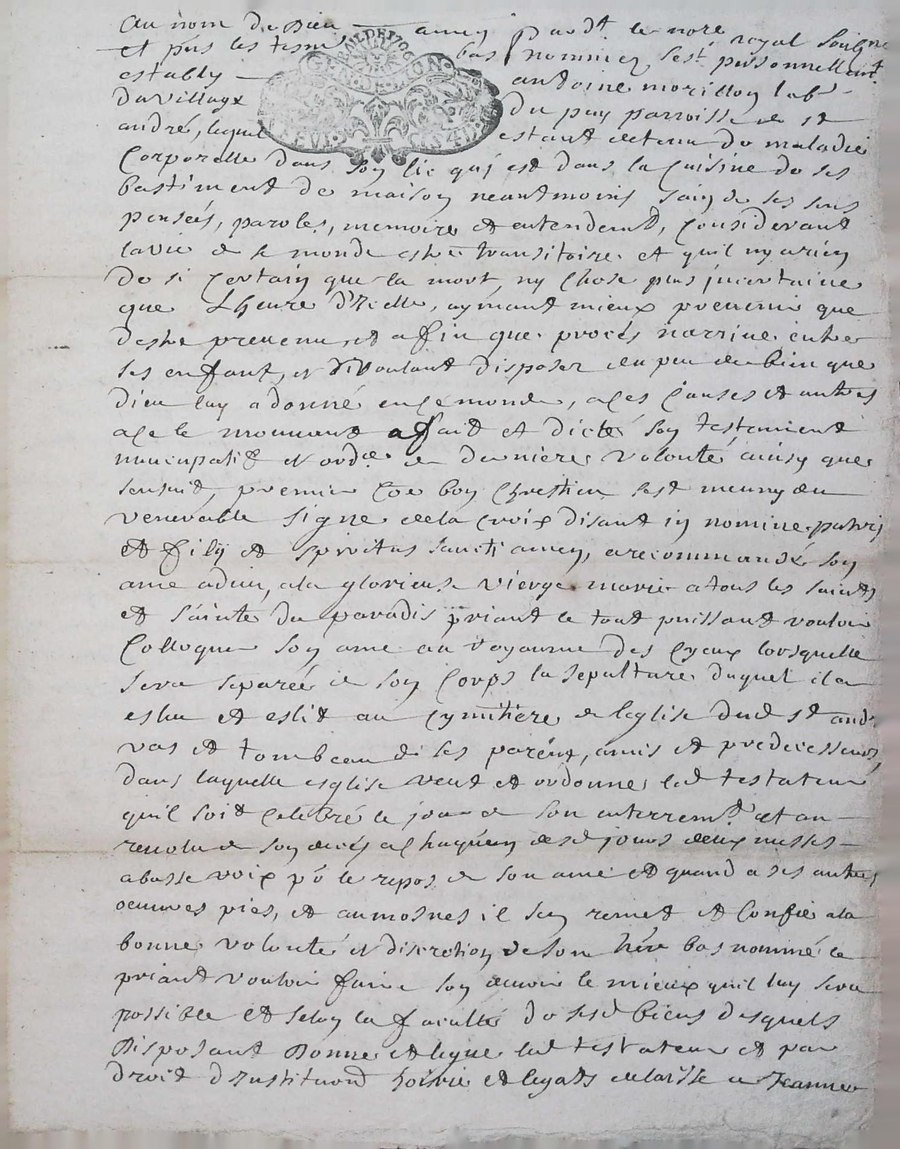 Au nom de Dieu amen pard.t le nore royal soubsigne
et pñs les tesms bas nommez, s'est personnellemt
estably antoine morillon lab.r
du village du puy parroisse de st
andré, lequel estant detenu de maladie
Corporelle dans son lic qui est dans la Cuisine de ses
bastiment de maison neantmoins sain de ses sens
pensées, paroles, memoire et entendemt, Considerant
la vie de ce monde estre transitoire et quil ny a rien
de si Certain que la mort, ny chose plus incertaine
que Lheure d'Icelle, aymant mieux prevenir que
destre prevenu, et afin que procés narrive entre
ses enfant, et voulant disposer du peu de bien que
Dieu luy a donné en ce monde, a ces Causes et autres
a ce le mouvant a fait et dicté son testament
nuncupatif et ord.ce de derniere volonté ainsy que
sensuit, premier Coe bon Chrestien sest muny du
venerable signe de la croix disant in nomine patris
et filij et spiritus sancti amen, a recommandé son
ame a dieu, a la glorieuse vierge marie a tous les saints
et sainte du paradis priant le tout puissant vouloir
Colloquer son ame au royaume des Cyeux lorsquelle
sera separée de son Corps la sepulture duquel il a
eslu et eslit au cymitiere de leglise dud st andré
vas et tombeau de ses parent, amis et predecesseurs,
dans laquelle esglise veut et ordonne led testateur
quil soit Celebré le jour de son enterremt. et an
revolu de son decés a chaquun desd jours deux messes
a basse voix pr le repos de son ame et quand a ses autres
oeuvres pies, et aumosnes il sen remet et Confie a la
bonne volonté et discretion de son hére bas nommé le
priant vouloir faire son devoir le mieux quil luy sera
possible et selon la faculté de sesd biens desquels
Disposant Donne et legue led testateur et par
droit d'Institu.on hoirie et legats delaisse a Jeanne